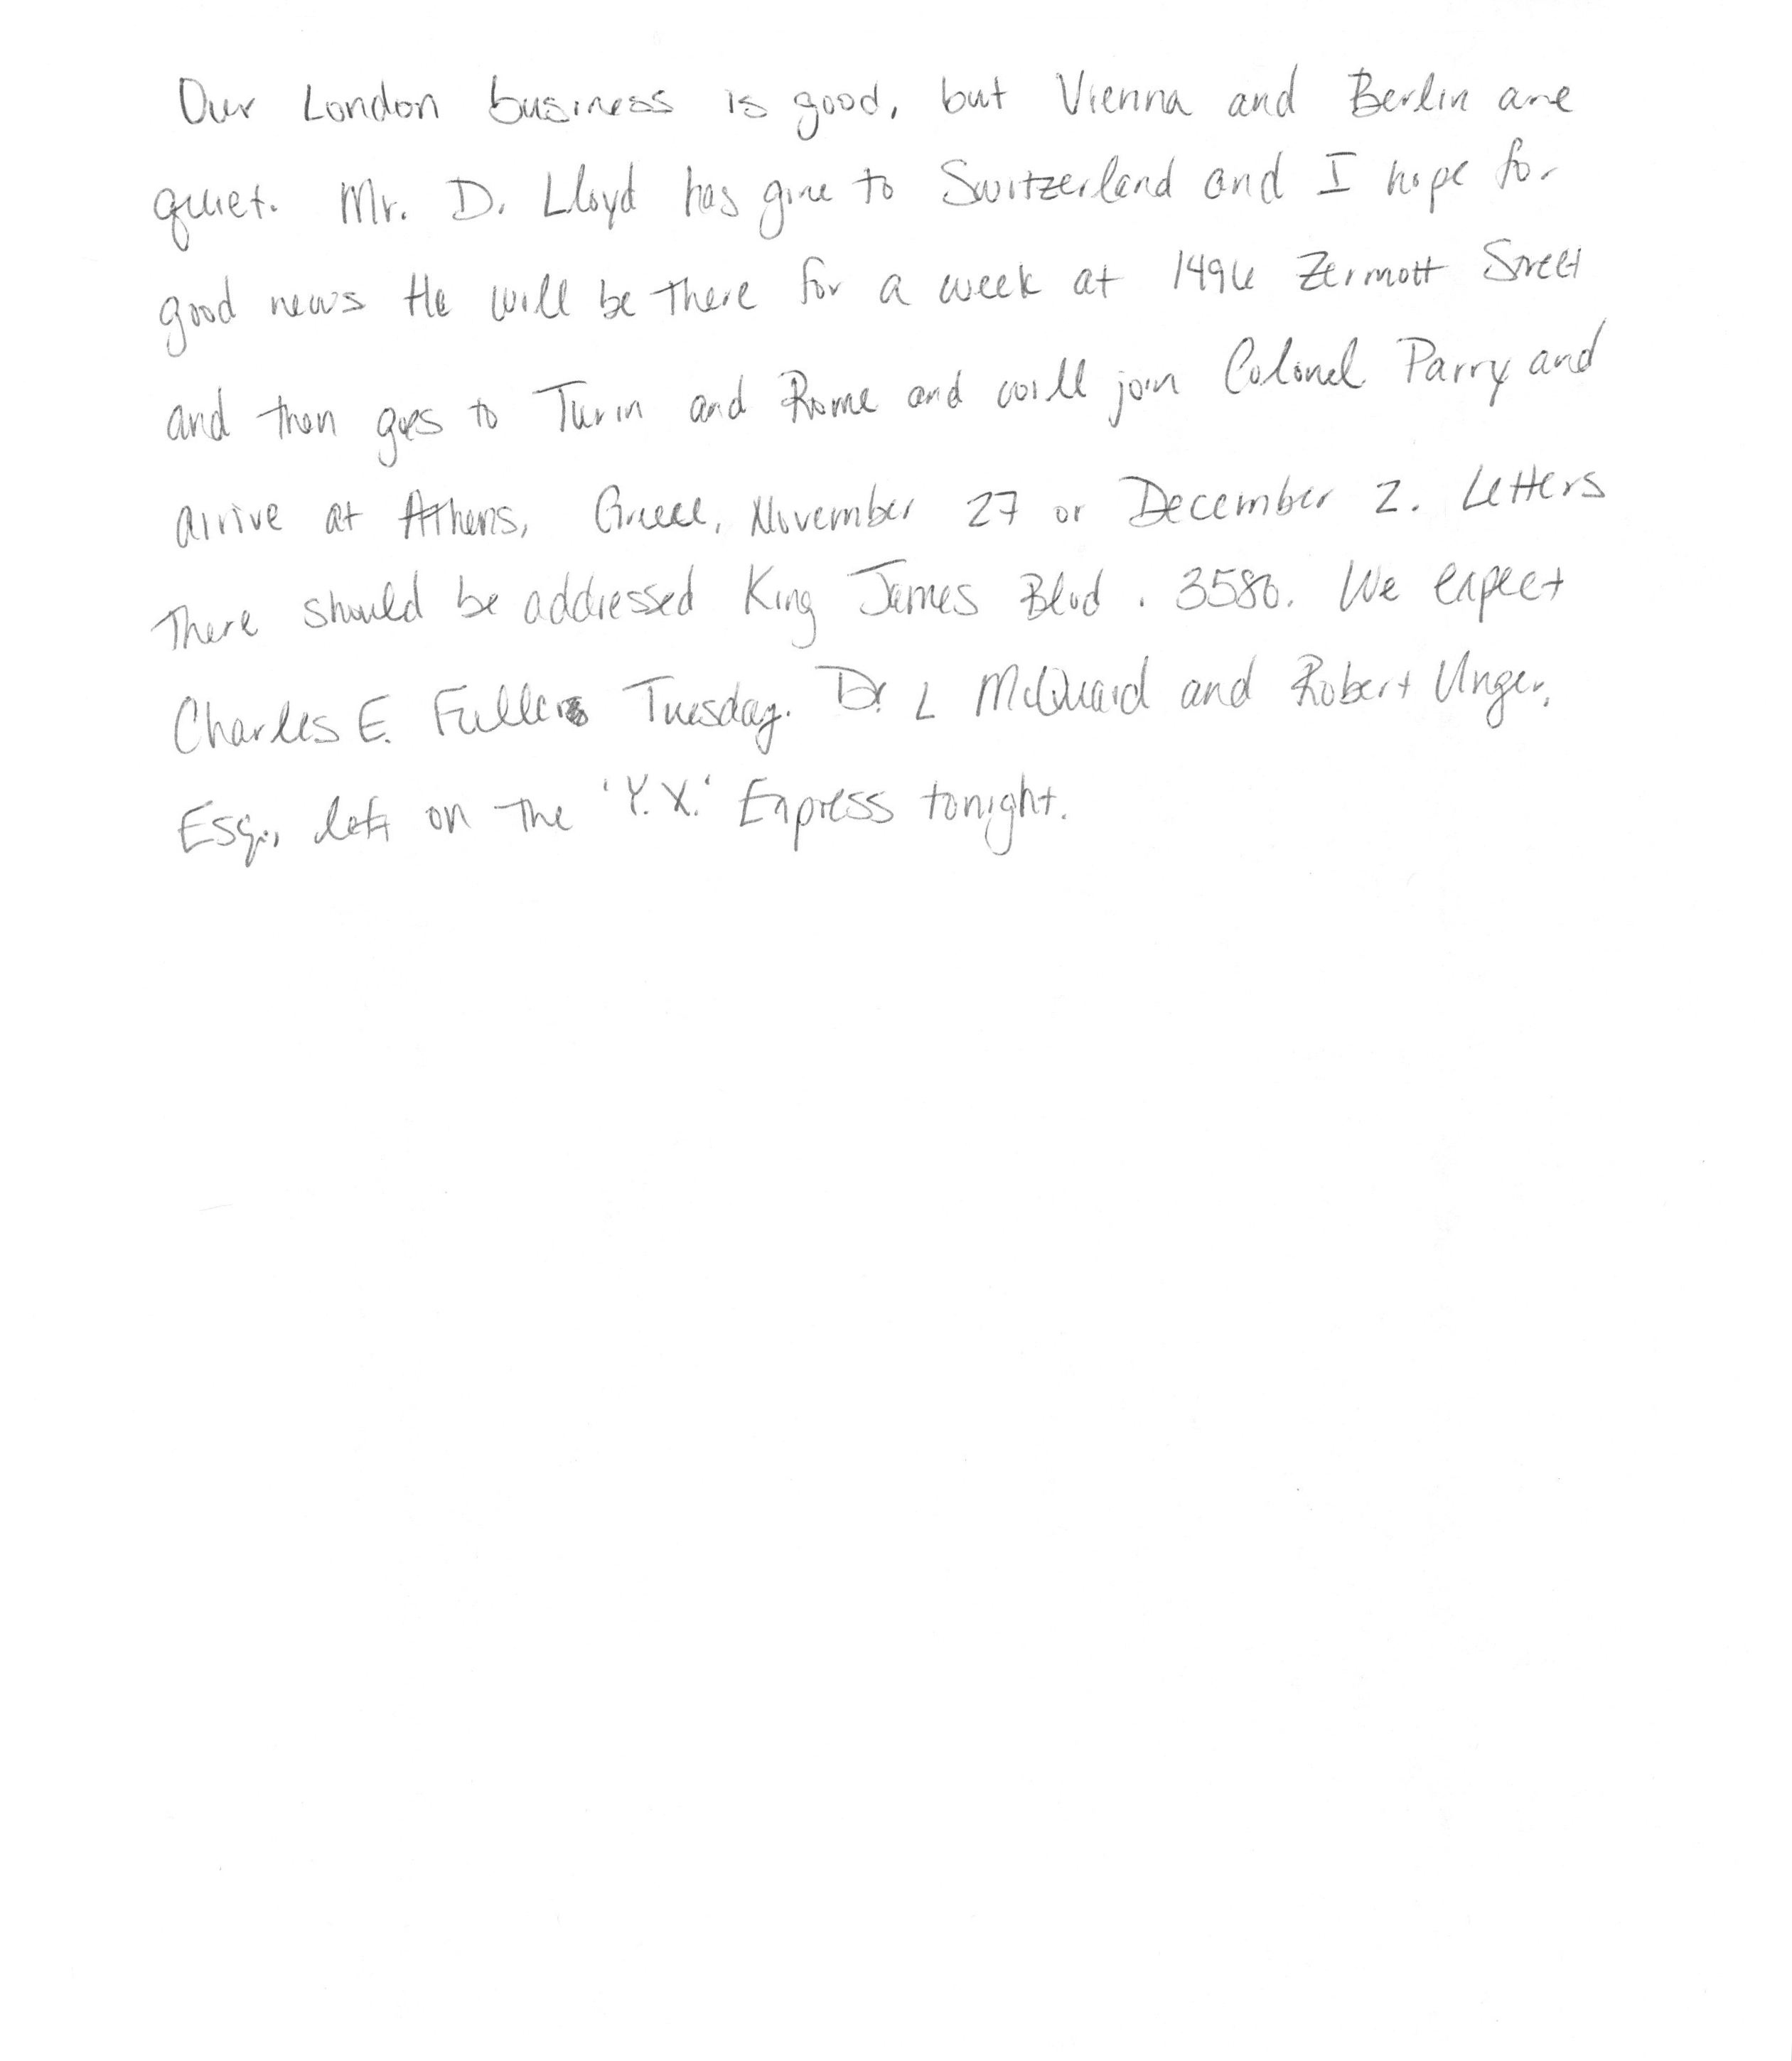 Our London business is good, but Vienna and Berlin are
quiet. Mr. D. Lloyd has gone to Switzerland and I hope for
good news He will be there for a week at 1496 Zermott Street
and then goes to Turin and Rome and will join Colonel Parry and
arrive at Athens, Greece, November 27 or December 2. Letters
there should be addressed King James Blvd. 3580. We expect
Charles E. Fuller Tuesday. Dr. L McQuaid and Robert Unger,
Esq., left on the 'Y.X.' Express tonight.